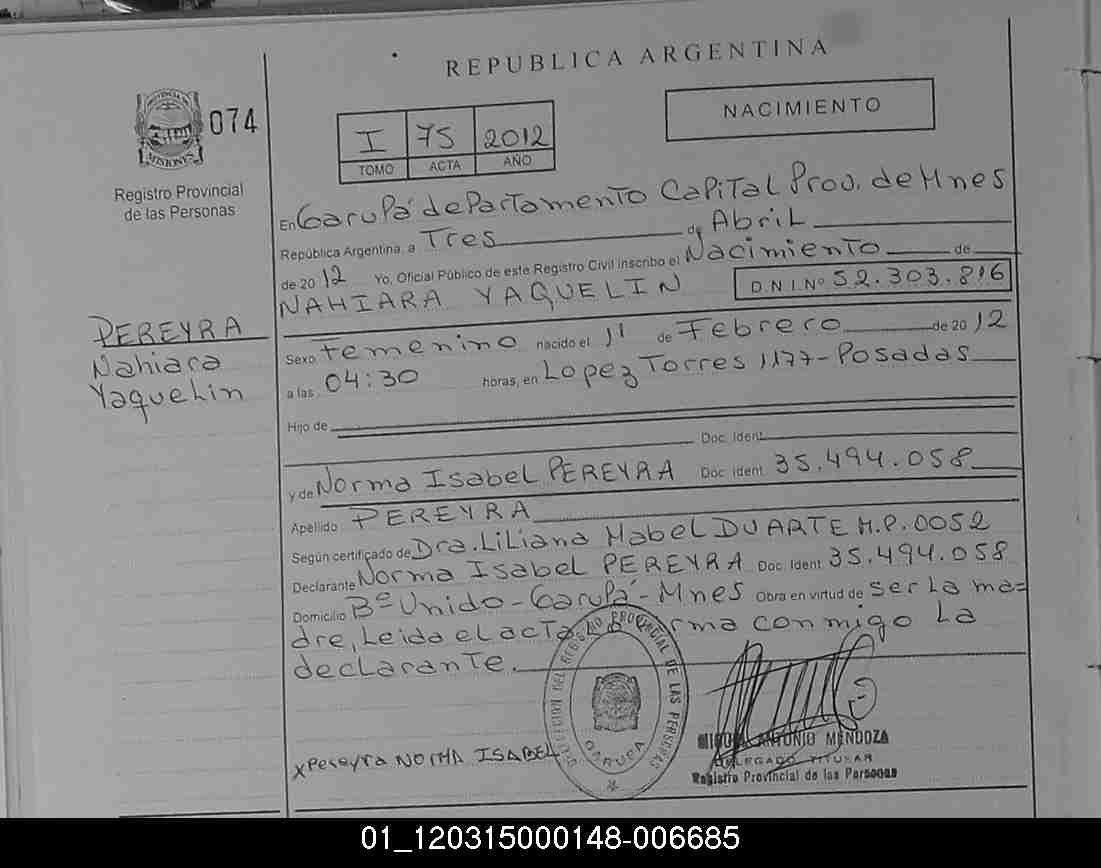 REPUBLICA ARGENTINA
PROVINCIA DE
MISIONES
074
Registro Provincial
de las Personas
I 75 2012
TOMO ACTA AÑO
NACIMIENTO
En Garupá departamento Capital Prov. de Mnes
República Argentina, a Tres de Abril
de 2012 Yo, Oficial Público de este Registro Civil inscribo el Nacimiento de
NAHIARA YAQUELIN D.N.I.Nº 52.303.816
PEREYRA
Nahiara
Yaquelin
Sexo Femenino nacido el 11 de Febrero de 2012
a las 04:30 horas, en Lopez Torres 1177-Posadas
Hijo de
Doc. Ident.
y de Norma Isabel PEREYRA Doc. ident. 35.494.058
Apellido PEREYRA
Según certificado de Dra. Liliana Mabel DUARTE M.P. 0052
Declarante Norma Isabel PEREYRA Doc. Ident. 35.494.058
Domicilio Bº Unido-Garupá-Mnes Obra en virtud de ser la ma=
dre, Leida el acta la firma conmigo la
declarante.
DIRECCION DEL REGISTRO PROVINCIAL DE LAS PERSONAS
GARUPA
x Pereyra NORMA ISABEL
MIGUEL ANTONIO MENDOZA
DELEGADO TITULAR
Registro Provincial de las Personas
01_120315000148-006685